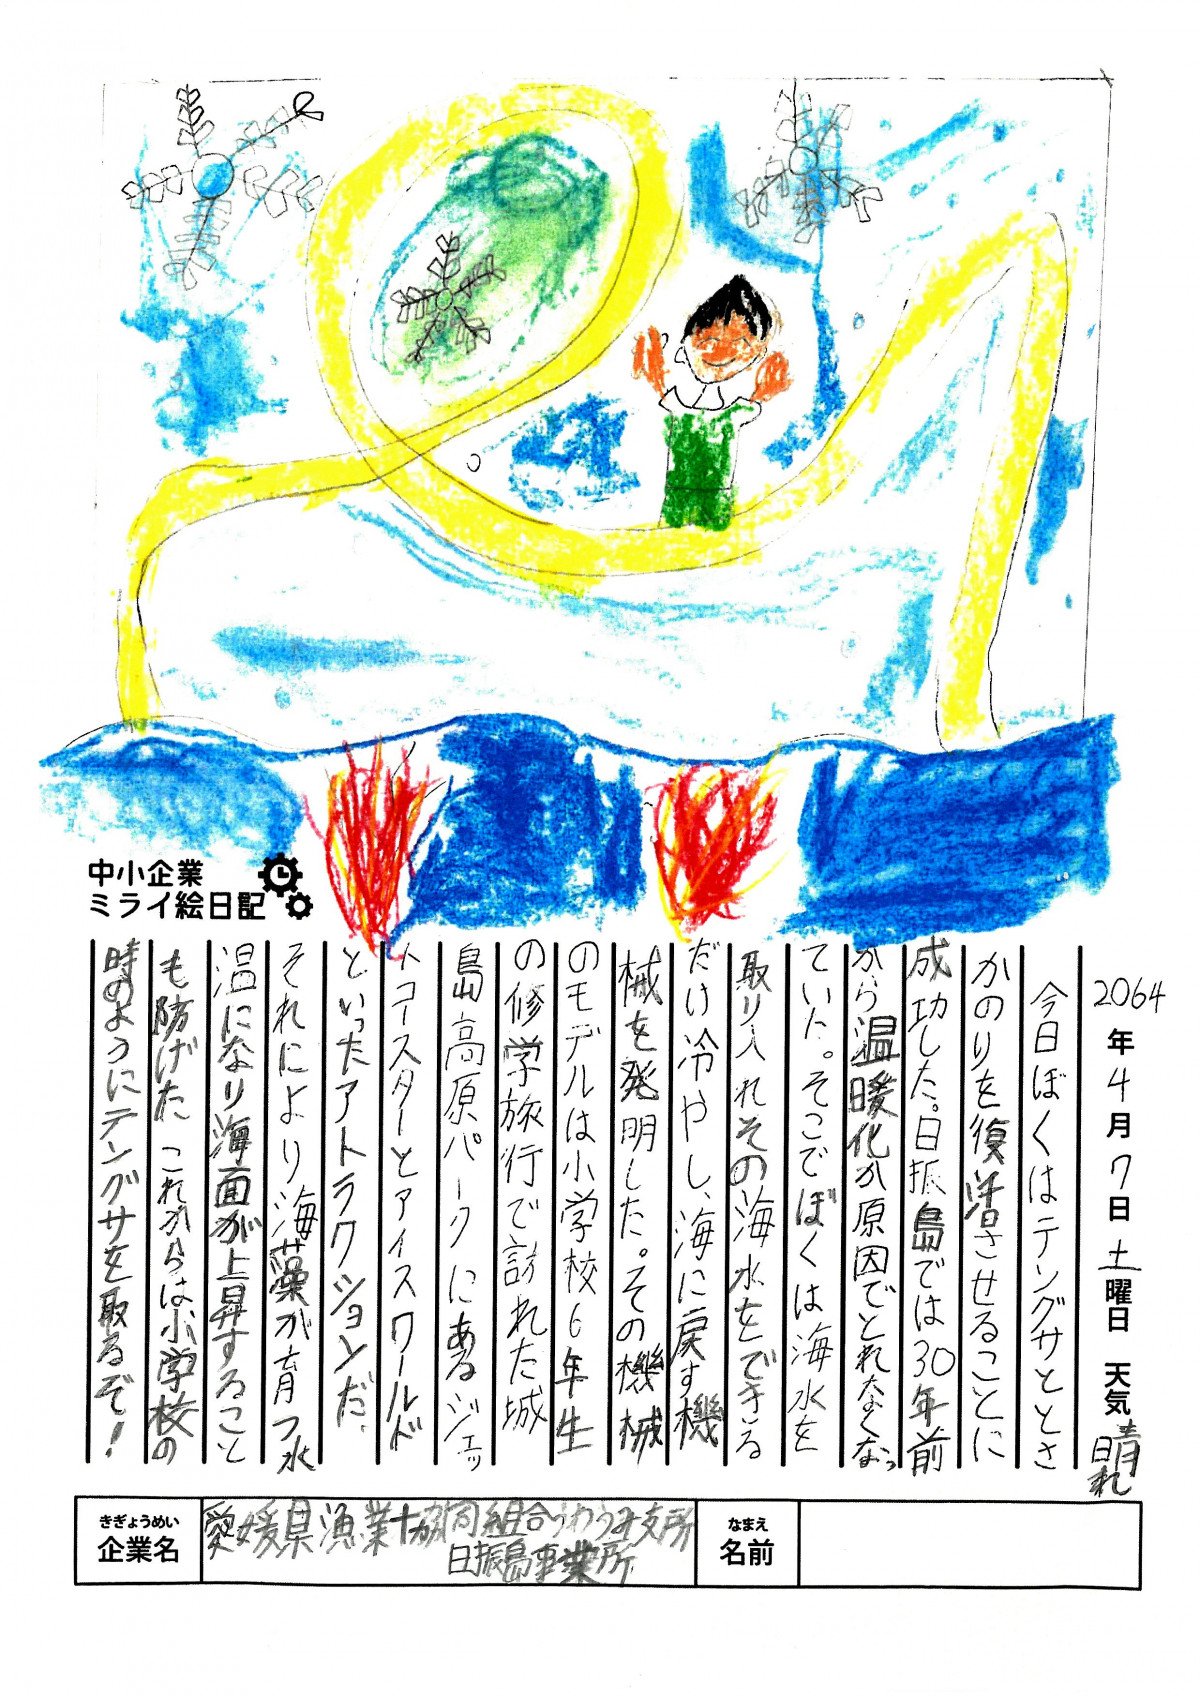 中小企業
ミライ絵日記
2064年4月7日土曜日 天気晴れ
今日ぼくはテングサととさ
かのりを復活させることに
成功した。日振島では30年前
から温暖化が原因でとれなくなっ
ていた。そこでぼくは海水を
取り入れその海水をできる
だけ冷やし、海に戻す機
械を発明した。その機械
のモデルは小学校6年生
の修学旅行で訪れた城
島高原パークにあるジェッ
トコースターとアイスワールド
といったアトラクションだ。
それにより海藻が育つ水
温になり海面が上昇すること
も防げた これからは小学校の
時のようにテングサを取るぞ!
きぎょうめい
企業名
愛媛県漁業協同組合うわうみ支所
日振島事業所
なまえ
名前